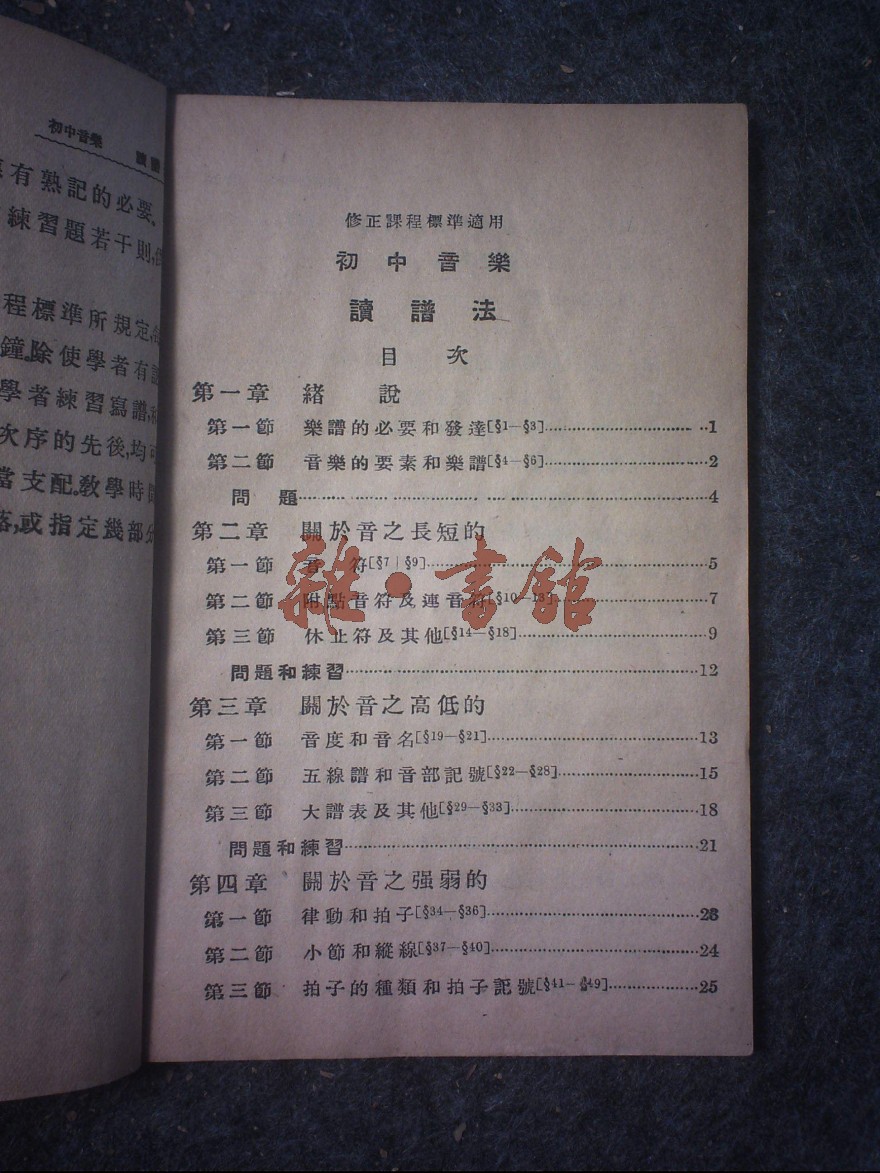 初中音樂
有熟記的必要。
練習題若干則,
程標準所規定,
鐘。除使學者有
學者練習寫譜,
次序的先後,均可
當支配。敎學時間
落,或指定幾部分
修正課程標準適用
初中音樂
讀譜法
目次
第一章 緒說
第一節 樂譜的必要和發達[§1—§3]……1
第二節 音樂的要素和樂譜[§4—§6]……2
問題……4
第二章 關於音之長短的
第一節 音符[§7|§9]……5
第二節 附點音符及連音符[§10—§13]……7
第三節 休止符及其他[§14—§18]……9
問題和練習……12
第三章 關於音之高低的
第一節 音度和音名[§19—§21]……13
第二節 五線譜和音部記號[§22—§28]……15
第三節 大譜表及其他[§29—§33]……18
問題和練習……21
第四章 關於音之强弱的
第一節 律動和拍子[§34—§36]……23
第二節 小節和縱線[§37—§40]……24
第三節 拍子的種類和拍子記號[§41—§49]……25
雜·書館